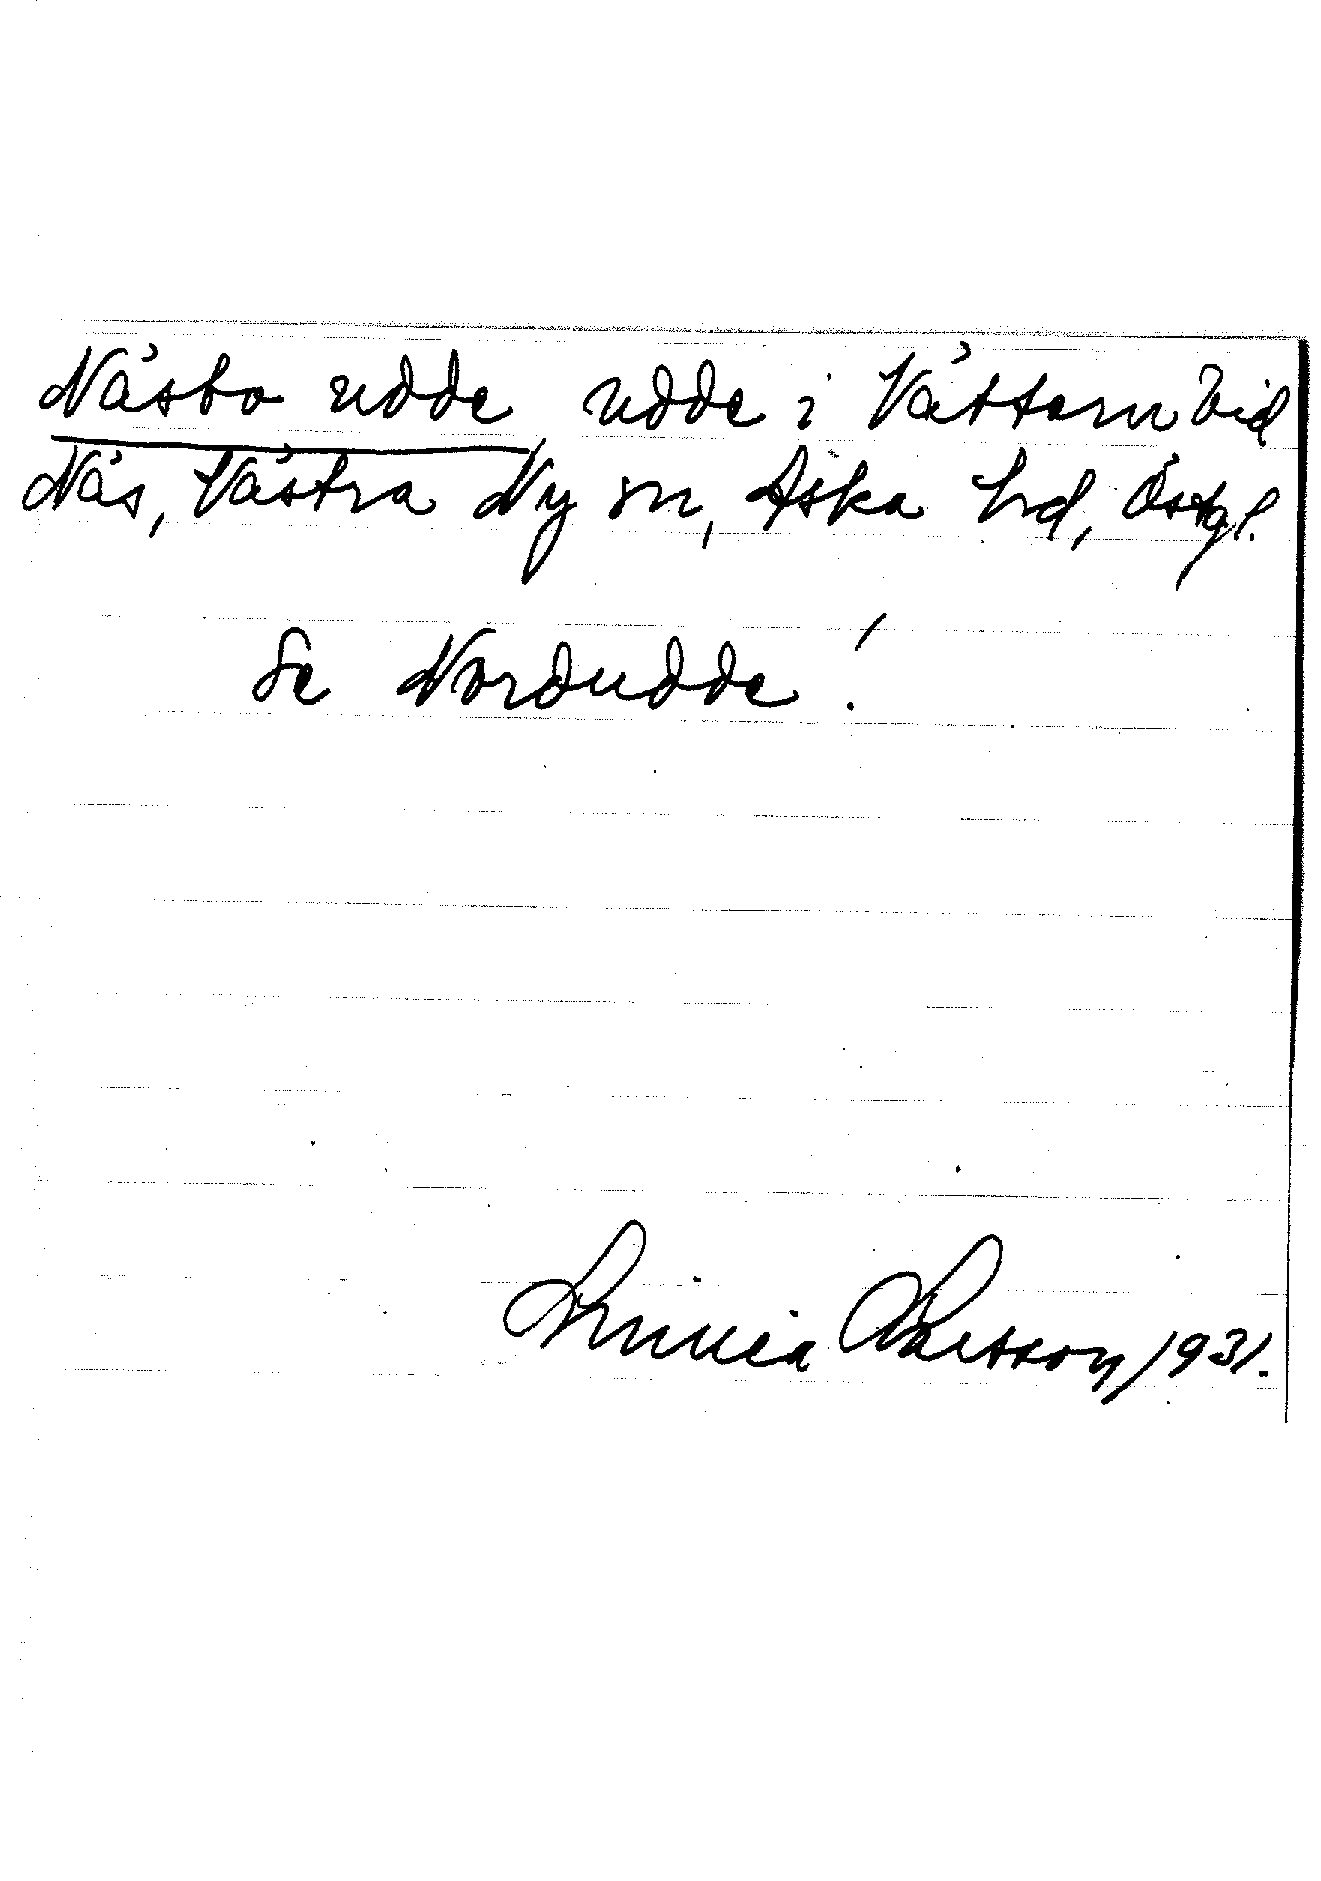 Näsbo udde, udde i Vättern vid
Näs, Västra Ny sn, Aska hd, Östgl.
Se Nordudde!
Linnea 1931.